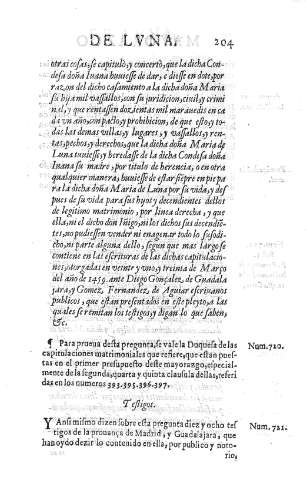 DE LVNA. 204
otras cosas, se capitulò, y concertò, que la dicha Con
desa doña Iuana huuiesse de dar, e diesse en dote, por
razon del dicho casamiento a la dicha doña Maria
su hija mil vassallos, con su juridicion, ciuil y crimi
nal, y que rentassen dozientos mil marauedis en ca
da vn año, con pacto, y prohibicion, de que esto, y to
das las demas villas, y lugares, y vassallos, y ren-
tas, pechos, y derechos, que la dicha doña Maria de
Luna tuuiesse, y heredasse de la dicha Condesa doña
Iuana su madre, por titulo de herencia, o en otra
qualquier manera, huuiesse de estar siempre en pie pa
ra la dicha doña Maria de Luna por su vida, y des
pues de su vida para sus hijos, y decendientes dellos
de legitimo matrimonio, por linea derecha, y que
ella, ni el dicho don Iñigo, ni los dichos sus decendiē
tes, no pudiessen vender ni enagenar todo lo susodi-
cho, ni parte alguna dello, segun que mas largo se
contiene en las escrituras de las dichas capitulacio-
nes, otorgadas en veinte y vno, y treinta de Março
del año de 1459. ante Diego Gonçalez, de Guadala
jara, y Gomez, Fernandez, de Aguiar escriuanos
publicos, y que estan presentados en este pleyto, a las
quales se remitan los testigos, y digan lo que saben,
&c.
¶ Para prueua desta pregunta, se vale la Duquesa de las
capitulaciones matrimoniales que refiere, que estan pues-
tas en el primer presupuesto deste mayorazgo, especial-
mente de la segunda, quarta y quinta clausula dellas, referi
das en los numeros 393.395.396.397.
Num. 720.
Testigos.
Y Ansi mismo dizen sobre esta pregunta diez y ocho tes
tigos de la prouança de Madrid, y Guadalajara, que
han oydo dezir lo contenido en ella, por publico y noto-
rio,
Num. 721.